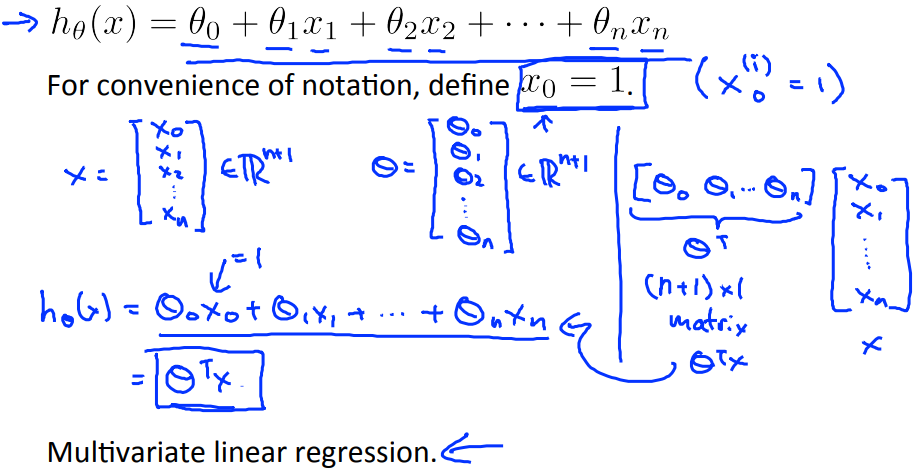 → hθ(x) = θ0 + θ1x1 + θ2x2 + ··· + θnxn
For convenience of notation, define x0 = 1. (x0^(i) = 1)
x = [x0 x1 x2 ⋮ xn] ∈ ℝ^n+1
θ = [θ0 θ1 θ2 ⋮ θn] ∈ ℝ^n+1
[θ0 θ1 ··· θn] [x0 x1 ⋮ xn]
θ^T
(n+1) × 1
matrix
x
θ^T x
= 1
hθ(x) = θ0x0 + θ1x1 + ··· + θnxn
= θ^T x
Multivariate linear regression. ←